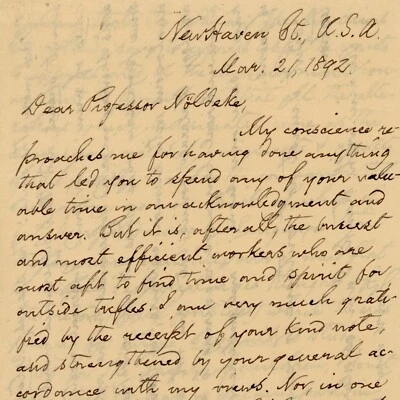 New Haven Ct., U.S.A.
Mar. 21, 1892.
Dear Professor Nöldeke,
My conscience re-
proaches me for having done anything
that led you to spend any of your valu-
able time in an acknowledgment and
answer. But it is, after all, the busiest
and most efficient workers who are
most apt to find time and spirit for
outside trifles. I am very much grati-
fied by the receipt of your kind note,
and strengthened by your general ac-
cordance with my views. Nor, in one